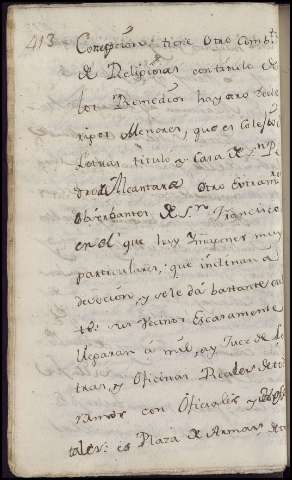 413
Concepcion: tiene otro Comb.to
de Religiosas con titulo de
los Remedios hay otro de Cle
rigos Menores, que es Colegio
Letras, titulo y Casa de S.n Pe
dro Alcantara otro Extram.s
Observantes de S.n Francisco
en el que hay Ymagenes muy
particulares, que inclinan a
devocion, y se le dá bastante cu
to: sus Vecinos Escasamente
llegaran á mil, ay Juez de Le
tras, y Oficinas Reales de to
ramos con Oficiales y
tales: es Plaza de Armas de